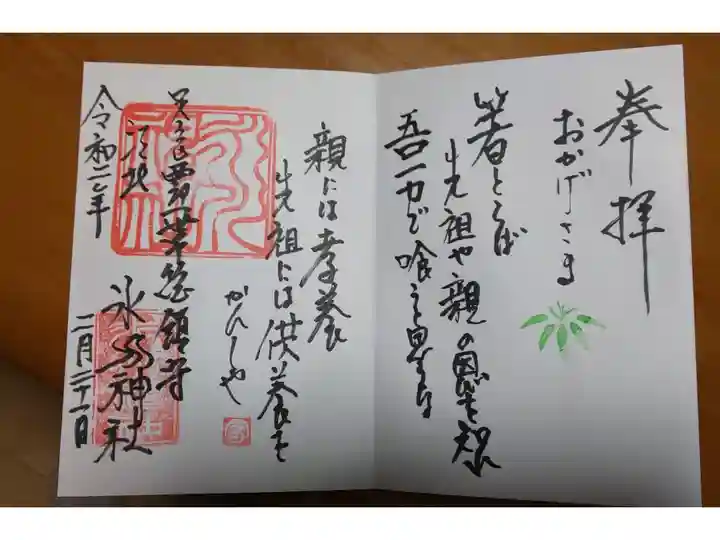 奉拝
おかげさま
箸とらば
先祖や親の恩を知れ
吾一力で喰うと思うな
親には孝養
先祖には供養を
かんしゃ
総鎮守
氷川神社
令和二年
二月二十一日